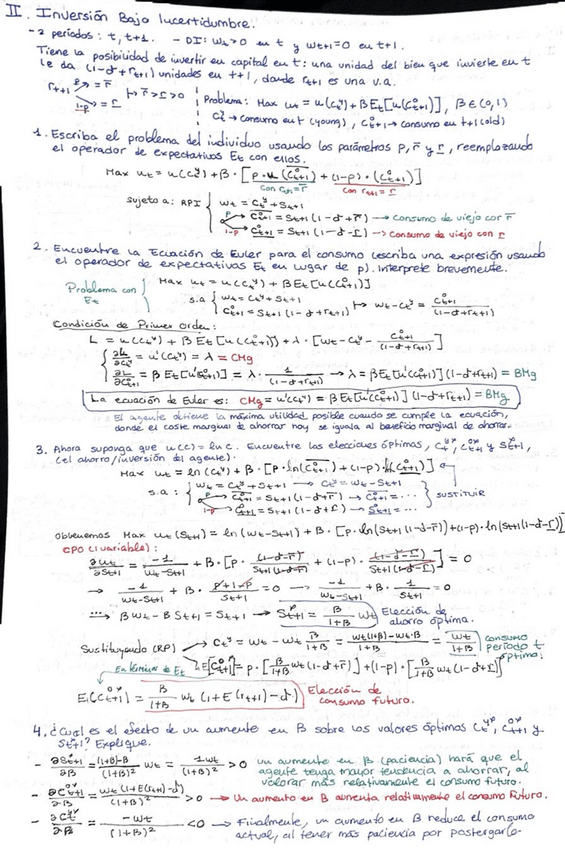 II. Inversión Bajo Incertidumbre.
- 2 periodos: t, t+1. - DI: Wt > 0 en t y Wt+1 = 0 en t+1.
Tiene la posibilidad de invertir en capital en t: una unidad del bien que invierte en t
le da (1-δ+rt+1) unidades en t+1, donde rt+1 es una v.a.
rt+1 p → = r̄
1-p → = r
↦ r̄ > r > 0
Problema: Max ut = u(Ct^y) + βEt[u(Ct+1^o)], β∈(0,1)
Ct^y → consumo en t (young), Ct+1^o → consumo en t+1 (old)
1. Escriba el problema del individuo usando los parámetros p, r̄ y r, reemplazando
el operador de expectativas Et con ellos.
Max ut = u(Ct^y) + β · [p · u(C̄t+1^o) + (1-p) · (Ct+1^o)]
con rt+1 = r̄ con rt+1 = r
sujeto a: RPI { Wt = Ct^y + St+1
p C̄t+1^o = St+1 (1-δ+r̄) → Consumo de viejo con r̄
1-p Ct+1^o = St+1 (1-δ-r) → Consumo de viejo con r
2. Encuentre la Ecuación de Euler para el consumo (escriba una expresión usando
el operador de expectativas Et en lugar de p). Interprete brevemente.
Problema con Et { Max ut = u(Ct^y) + βEt[u(Ct+1^o)]
s.a { Wt = Ct^y + St+1
Ct+1^o = St+1 (1-δ+rt+1) ↦ Wt - Ct^y = Ct+1^o / (1-δ+rt+1)
Condición de Primer Orden:
L = u(Ct^y) + βEt[u(Ct+1^o)] + λ · [Wt - Ct^y - Ct+1^o / (1-δ+rt+1)]
∂L/∂Ct^y = u'(Ct^y) = λ = CMg
∂L/∂Ct+1^o = βEt[u'(Ct+1^o)] = λ · 1/(1-δ+rt+1) → λ = βEt[u'(Ct+1^o)] (1-δ+rt+1) = BMg
La ecuación de Euler es: CMg = u'(Ct^y) = βEt[u'(Ct+1^o)] (1-δ+rt+1) = BMg
El agente obtiene la máxima utilidad posible cuando se cumple la ecuación,
donde el coste marginal de ahorrar hoy se iguala al beneficio marginal de ahorrar.
3. Ahora suponga que u(c) = ln c. Encuentre las elecciones óptimas, Ct^y*, Ct+1^o* y St+1*,
(el ahorro/inversión del agente).
Max ut = ln(Ct^y) + β · [p · ln(C̄t+1^o) + (1-p) · ln(Ct+1^o)]
s.a: { Wt = Ct^y + St+1 → Ct^y = Wt - St+1
p C̄t+1^o = St+1 (1-δ+r̄) → C̄t+1^o = ...
1-p Ct+1^o = St+1 (1-δ+r) → St+1^o = ...
} SUSTITUIR
Obtenemos Max ut(St+1) = ln(Wt - St+1) + β · [p · ln(St+1(1-δ-r̄)) + (1-p) · ln(St+1(1-δ-r))]
CPO (1 variable):
∂ut/∂St+1 = -1/(Wt - St+1) + β · [p · (1-δ-r̄)/(St+1(1-δ-r̄)) + (1-p) · (1-δ-r)/(St+1(1-δ-r))] = 0
→ -1/(Wt - St+1) + β · (p+1-p)/St+1 = 0 → -1/(Wt - St+1) + β · 1/St+1 = 0
...→ βWt - βSt+1 = St+1 → St+1* = β/(1+β) Wt Elección de ahorro óptima.
Sustituyendo (RP) → Ct^y = Wt - Wt β/(1+β) = (Wt(1+β) - Wt·β)/(1+β) = Wt/(1+β) consumo periodo t óptimo.
En términos de Et → E[Ct+1^o] = p · [β/(1+β) Wt (1-δ+r̄)] + (1-p) · [β/(1+β) Wt (1-δ+r)]
Et(Ct+1^o*) = β/(1+β) Wt (1+E(rt+1)-δ) Elección de consumo futuro.
4. ¿Cuál es el efecto de un aumento en β sobre los valores óptimos Ct^y*, Ct+1^o* y
St+1*? Explique.
- ∂St+1*/∂β = ((1+β)-β)/(1+β)² Wt = 1·Wt/(1+β)² > 0 un aumento en β (paciencia) hará que el
agente tenga mayor tendencia a ahorrar, al
valorar más relativamente el consumo futuro.
- ∂Ct+1^o*/∂β = Wt(1+E(rt+1)-δ)/(1+β)² > 0 → Un aumento en β aumenta relativamente el consumo Futuro.
- ∂Ct^y*/∂β = -Wt/(1+β)² < 0 → Finalmente, un aumento en β reduce el consumo
actual, al tener más paciencia por postergarlo.